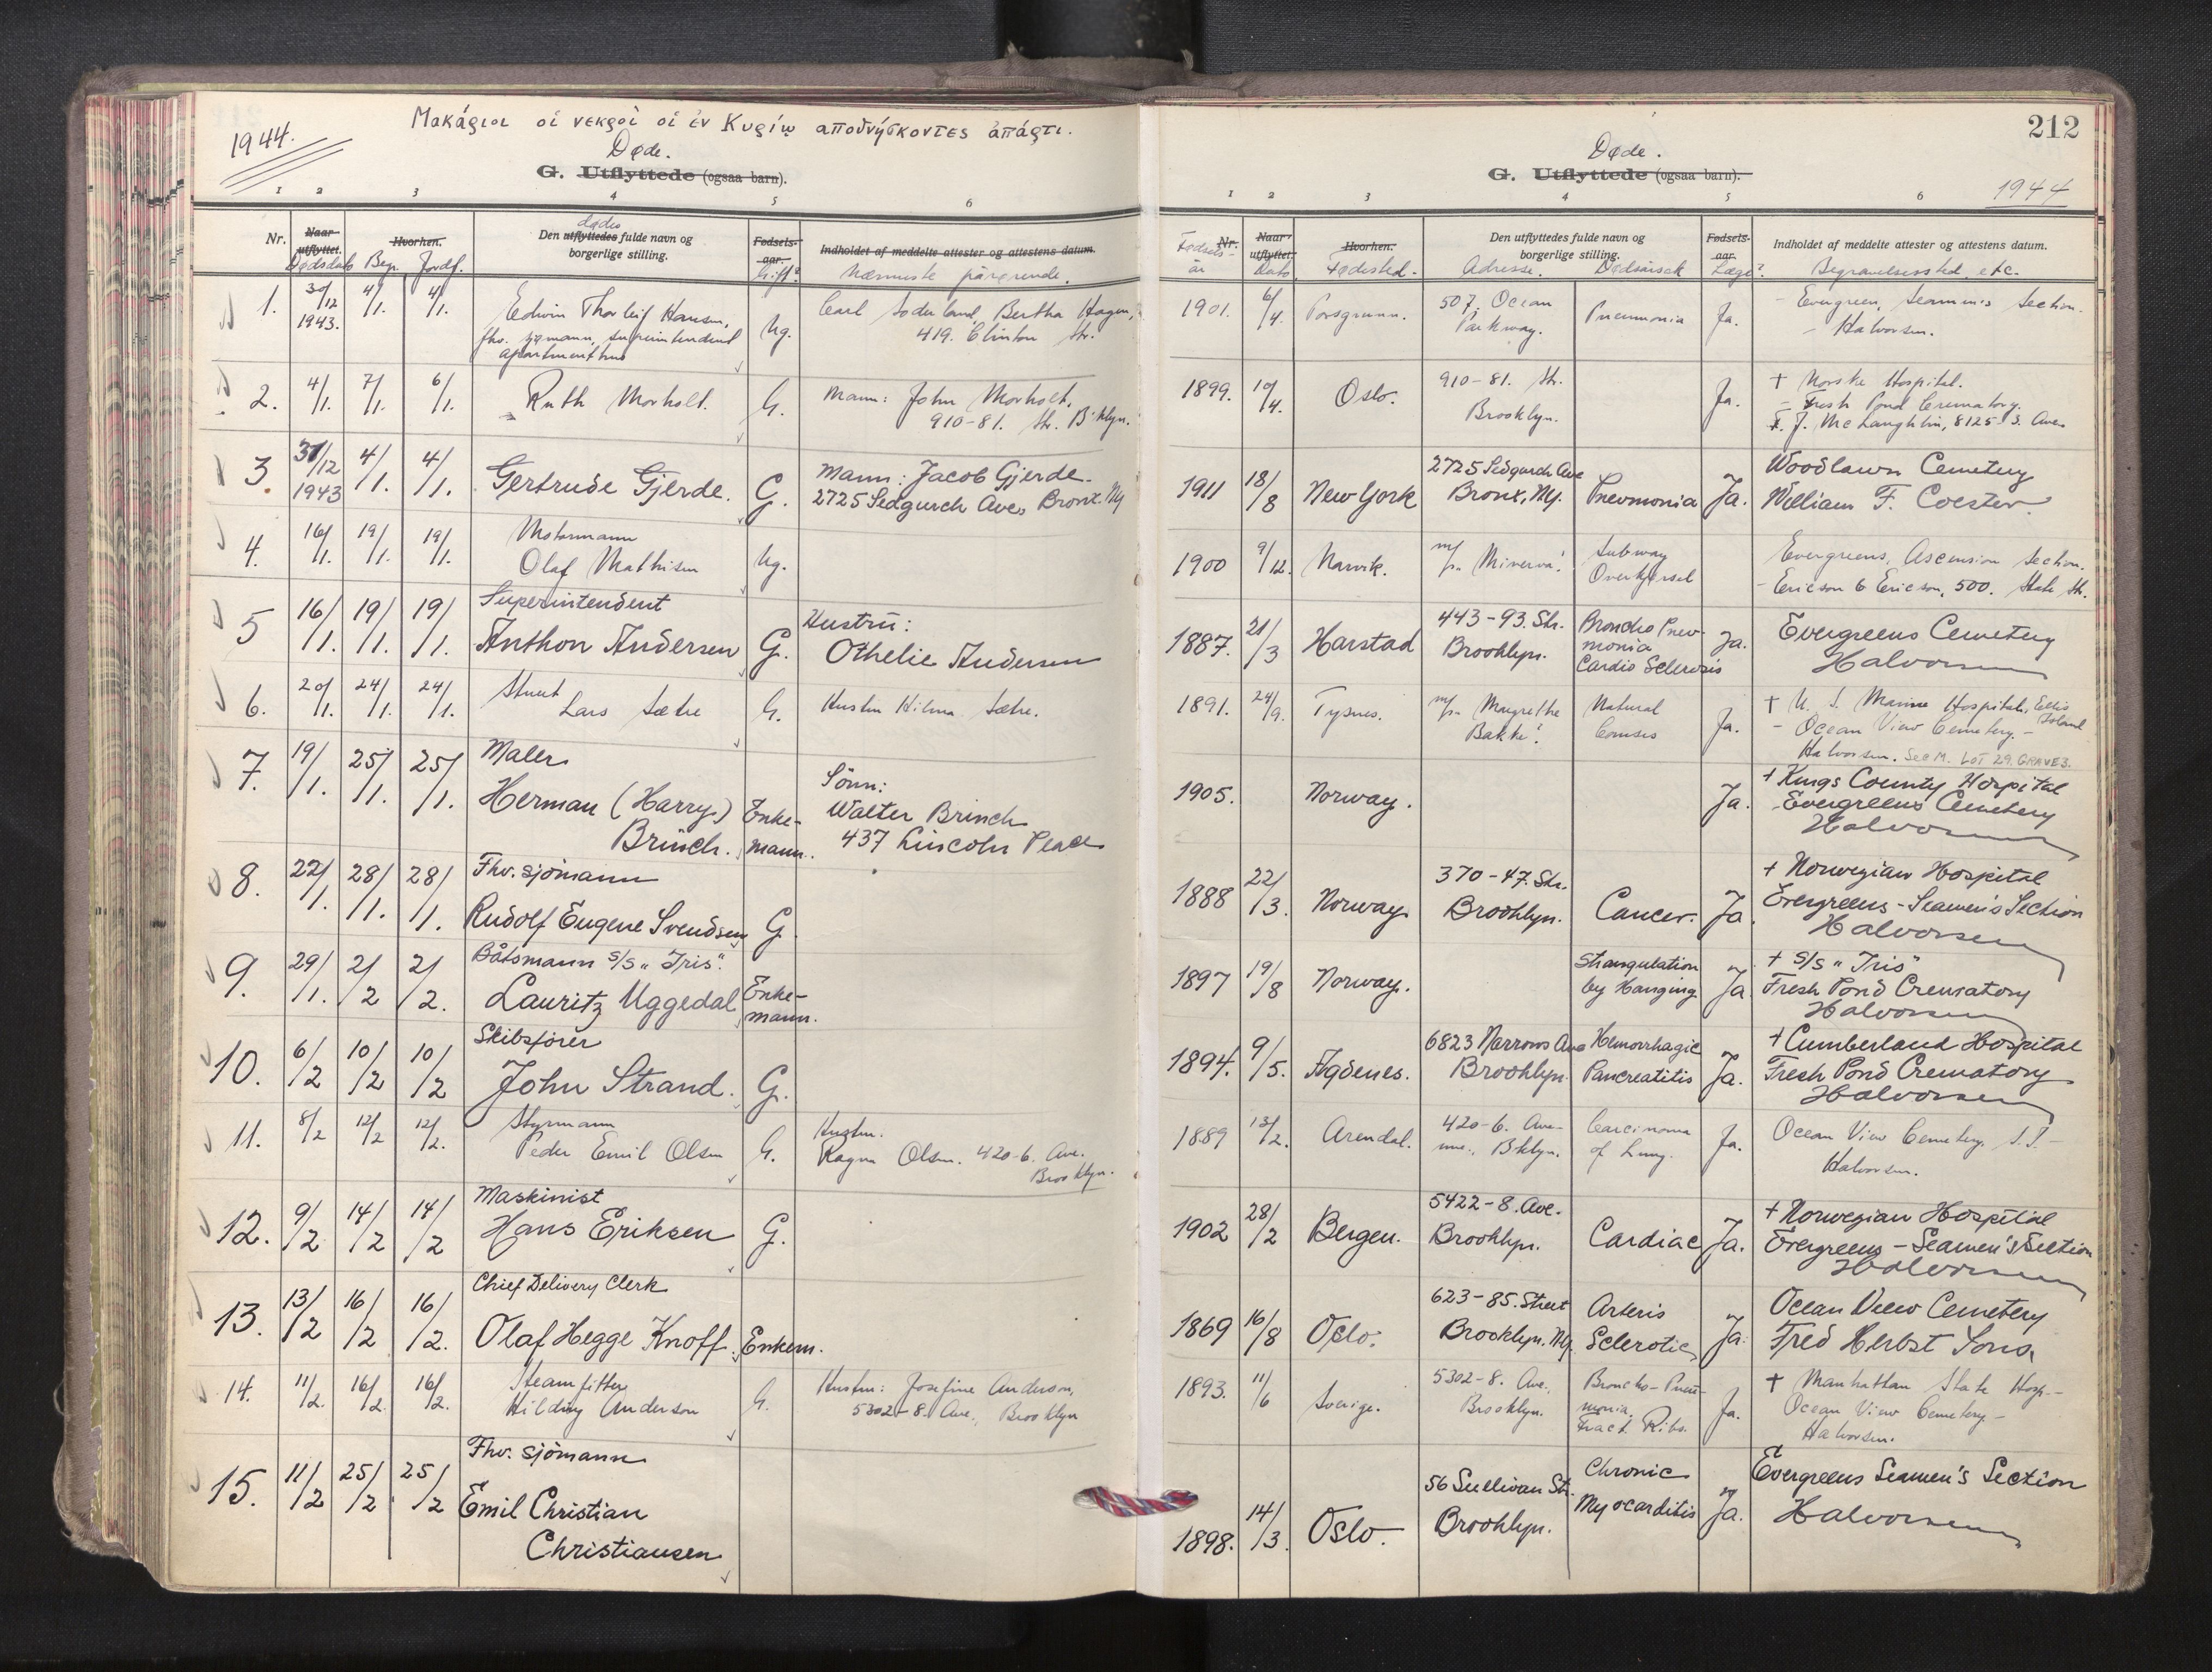 1944.
Μακάριοι οἱ νεκροὶ οἱ ἐν Κυρίῳ αποθνήσκοντες ἀπάρτι.
Døde.
G. Utflyttede (ogsaa barn).
1 2 3 4 5 6
Nr. Naar utflyttet. Hvorhen. Den utflyttedes fulde navn og borgerlige stilling. Fødsels-aar. Indholdet af meddelte attester og attestens datum.
Dødsdato Begr. Jordf. dødes Gift? Nærmeste pårørende.
1. 30/12 1943. 4/1. 4/1. Edwin Thorleif Hansen, fhv. sjømann, superintendent apartmenthus Ug. Carl Soderland, Bertha Hagen, 419. Clinton Str.
2. 4/1. 7/1. 6/1. Ruth Morholt. G. Mann: John Morholt, 910-81. Str. B'klyn.
3. 31/12 1943 4/1. 4/1. Gertrude Gjerde. G. Mann: Jacob Gjerde. 2725 Sedgurch Ave, Bronx. Ny
4. 16/1. 19/1. 19/1. Motormann Olaf Mathisen Ug.
5 16/1. 19/1. 19/1. Superintendent Anthon Andersen G. Hustru: Othelie Andersen
6. 20/1. 24/1. 24/1. Stuert Lars Sætre G. Hustru Hilma Sætre.
7. 19/1. 25/1. 25/1. Maler Herman (Harry) Brinch. Enke-mann. Sönn: Walter Brinch 437 Lincoln Place
8. 22/1. 28/1. 28/1. Fhv. sjömann Rudolf Eugene Svendsen G.
9. 29/1. 2/2 2/2. Båtsmann S/S „Iris". Lauritz Uggedal Enke-mann.
10. 6/2 10/2 10/2 Skibsfører John Strand. G.
11. 8/2 12/2 12/2. Styrmann Peder Emil Olsen G. Hustru. Ragna Olsen. 420-6. Ave. Brooklyn.
12. 9/2 14/2 14/2 Maskinist Hans Eriksen G.
13. 13/2 16/2 16/2. Chief Delivery Clerk Olaf Hegge Knoff. Enkem.
14. 11/2. 16/2. 16/2. Steamfitter Hilding Anderson G. Hustru: Josefine Anderson, 5302-8. Ave., Brooklyn
15. 11/2 25/2 25/2 Fhv. sjömann Emil Christian Christiansen
212
Døde.
G. Utflyttede (ogsaa barn).
1944
1 2 3 4 5 6
Nr. Naar utflyttet Hvorhen. Den utflyttedes fulde navn og borgerlige stilling. Fødsels-aar. Indholdet af meddelte attester og attestens datum.
Fødsels-år Dato Fødested. Adresse. Dødsårsak Læge? Begravelsessted etc.
1901. 6/4. Porsgrunn. 507. Ocean Parkway. Pneumonia Ja. - Evergreen, Seamen's Section. - Halvorsen.
1899. 10/4. Oslo. 910-81. Str. Brooklyn. Ja. + Norske Hospital. - Fresh Pond Crematory. F. J. McLaughlin, 8125-3. Ave.
1911 18/8 New York 2725 Sedgurch Ave Bronx, Ny. Pneumonia Ja. Woodlawn Cemetery William F. Coester.
1900 9/12. Narvik. m/s „Minerva". Subway Overkjørsel Evergreens, Ascension Section. - Ericson & Ericson, 500. State Str.
1887. 21/3 Harstad 443-93. Str. Brooklyn. Broncho Pneu-monia Cardio Sclerosis Ja. Evergreens Cemetery Halvorsen
1891. 24/9. Tysnes. m/s „Margrethe Bakke". Natural Causes Ja. + U. S. Marine Hospital, Ellis Island - Ocean View Cemetery. - Halvorsen. Sec M. LOT 29. GRAVE 3.
1905. Norway. Ja. + Kings County Hospital Evergreens Cemetery Halvorsen
1888 22/3. Norway. 370-47. Str. Brooklyn. Cancer. Ja. + Norwegian Hospital Evergreens - Seamen's Section Halvorsen
1897 19/8 Norway. Strangulation by Hanging Ja. + S/S „Iris" Fresh Pond Crematory Halvorsen
1894. 9/5. Agdenes. 6823 Narrows Ave Brooklyn. Hemorrhagic Pancreatitis Ja. + Cumberland Hospital Fresh Pond Crematory Halvorsen
1889 13/2. Arendal. 420-6. Ave-nue, Bklyn. Carcinoma of Lung. Ja. Ocean View Cemetery. S. I. - Halvorsen.
1902 28/2 Bergen. 5422-8. Ave. Brooklyn. Cardiac Ja. + Norwegian Hospital Evergreens - Seamen's Section Halvorsen
1869 16/8 Oslo. 623-85. Street Brooklyn. Ny. Arteris Sclerotic Ja. Ocean View Cemetery Fred Herbst Sons
1893. 11/6 Sverige. 5302-8. Ave., Brooklyn. Broncho-Pneu-monia, Fract. Ribs. Ja. + Manhattan State Hosp. - Ocean View Cemetery - Halvorsen.
1898. 14/3. Oslo. 56 Sullivan Str. Brooklyn. Chronic Myocarditis Ja. Evergreens Seamen's Section Halvorsen